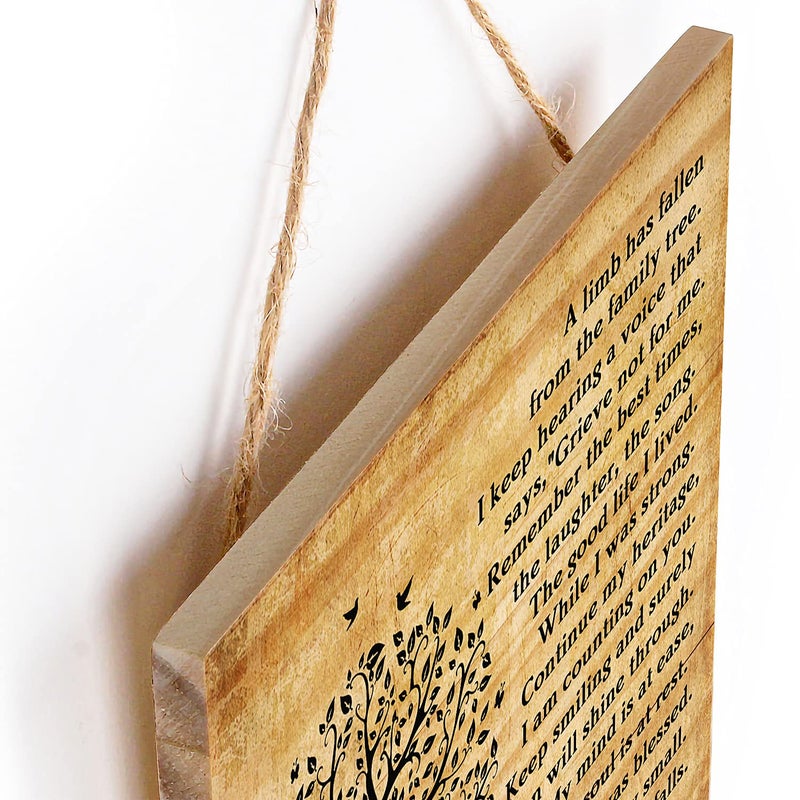 A limb has fallen
from the family tree.
I keep hearing a voice that
says, "Grieve not for me.
Remember the best times,
the laughter, the song.
The good life I lived.
While I was strong.
Continue my heritage,
I am counting on you.
Keep smiling and surely
will shine through.
My mind is at ease,
soul is at rest.
was blessed.
small.
falls.